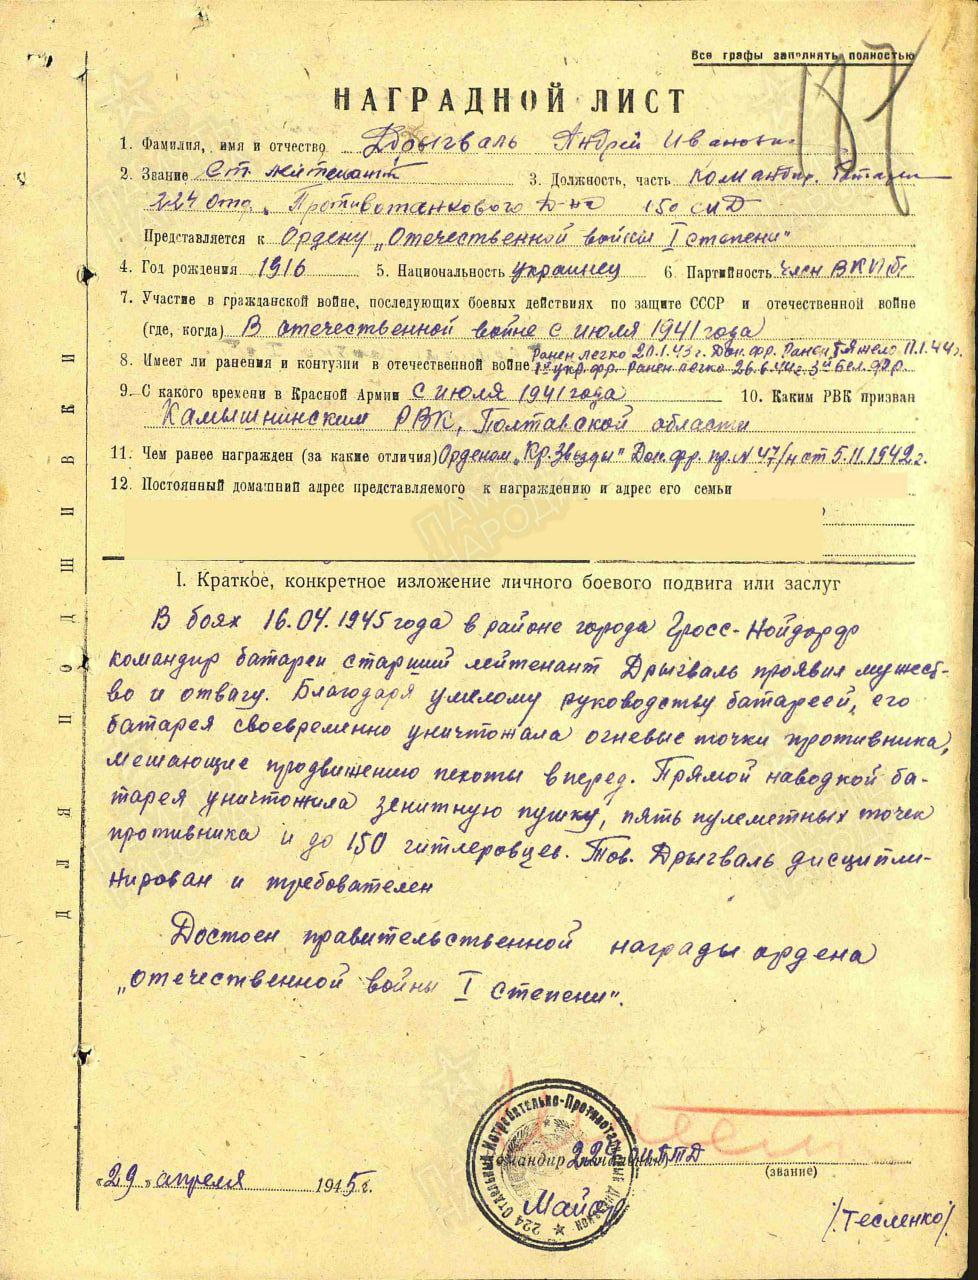 Все графы заполнять полностью
187
НАГРАДНОЙ ЛИСТ
1. Фамилия, имя и отчество Дрыгваль Андрей Иванович
2. Звание Ст. лейтенант 3. Должность, часть Командир батареи
224 отд. Противотанкового д-на 150 СИД
Представляется к Ордену „Отечественной войны I степени"
4. Год рождения 1916 5. Национальность украинец 6. Партийность член ВКП/б/
7. Участие в гражданской войне, последующих боевых действиях по защите СССР и отечественной войне
(где, когда) В отечественной войне с июля 1941 года
8. Имеет ли ранения и контузии в отечественной войне Ранен легко 20.1.43 г. Дон. фр. Ранен тяжело 11.1.44 г.
1й укр. фр. Ранен легко 26.6.44 г. 3й бел. фр.
9. С какого времени в Красной Армии с июля 1941 года 10. Каким РВК призван
Камышнинским РВК, Полтавской области
11. Чем ранее награжден (за какие отличия) Орденом „Кр. Звезды" Дон. фр. пр. № 47/н от 5.11.1942 г.
12. Постоянный домашний адрес представляемого к награждению и адрес его семьи
I. Краткое, конкретное изложение личного боевого подвига или заслуг
В боях 16.04.1945 года в районе города Гросс-Нойдорф
командир батареи старший лейтенант Дрыгваль проявил мужест-
во и отвагу. Благодаря умелому руководству батареей, его
батарея своевременно уничтожала огневые точки противника,
мешающие продвижению пехоты вперед. Прямой наводкой ба-
тарея уничтожила зенитную пушку, пять пулеметных точек
противника и до 150 гитлеровцев. Тов. Дрыгваль дисципли-
нирован и требователен
Достоен правительственной награды ордена
„Отечественной войны I степени".
Командир 224 ОИПТД
(звание)
„29" апреля 1945 г.
Майор
/Тесленко/
224 Отдельный Истребительно-Противотанковый Дивизион
ДЛЯ ПОДШИВКИ
ПАМЯТЬ НАРОДА